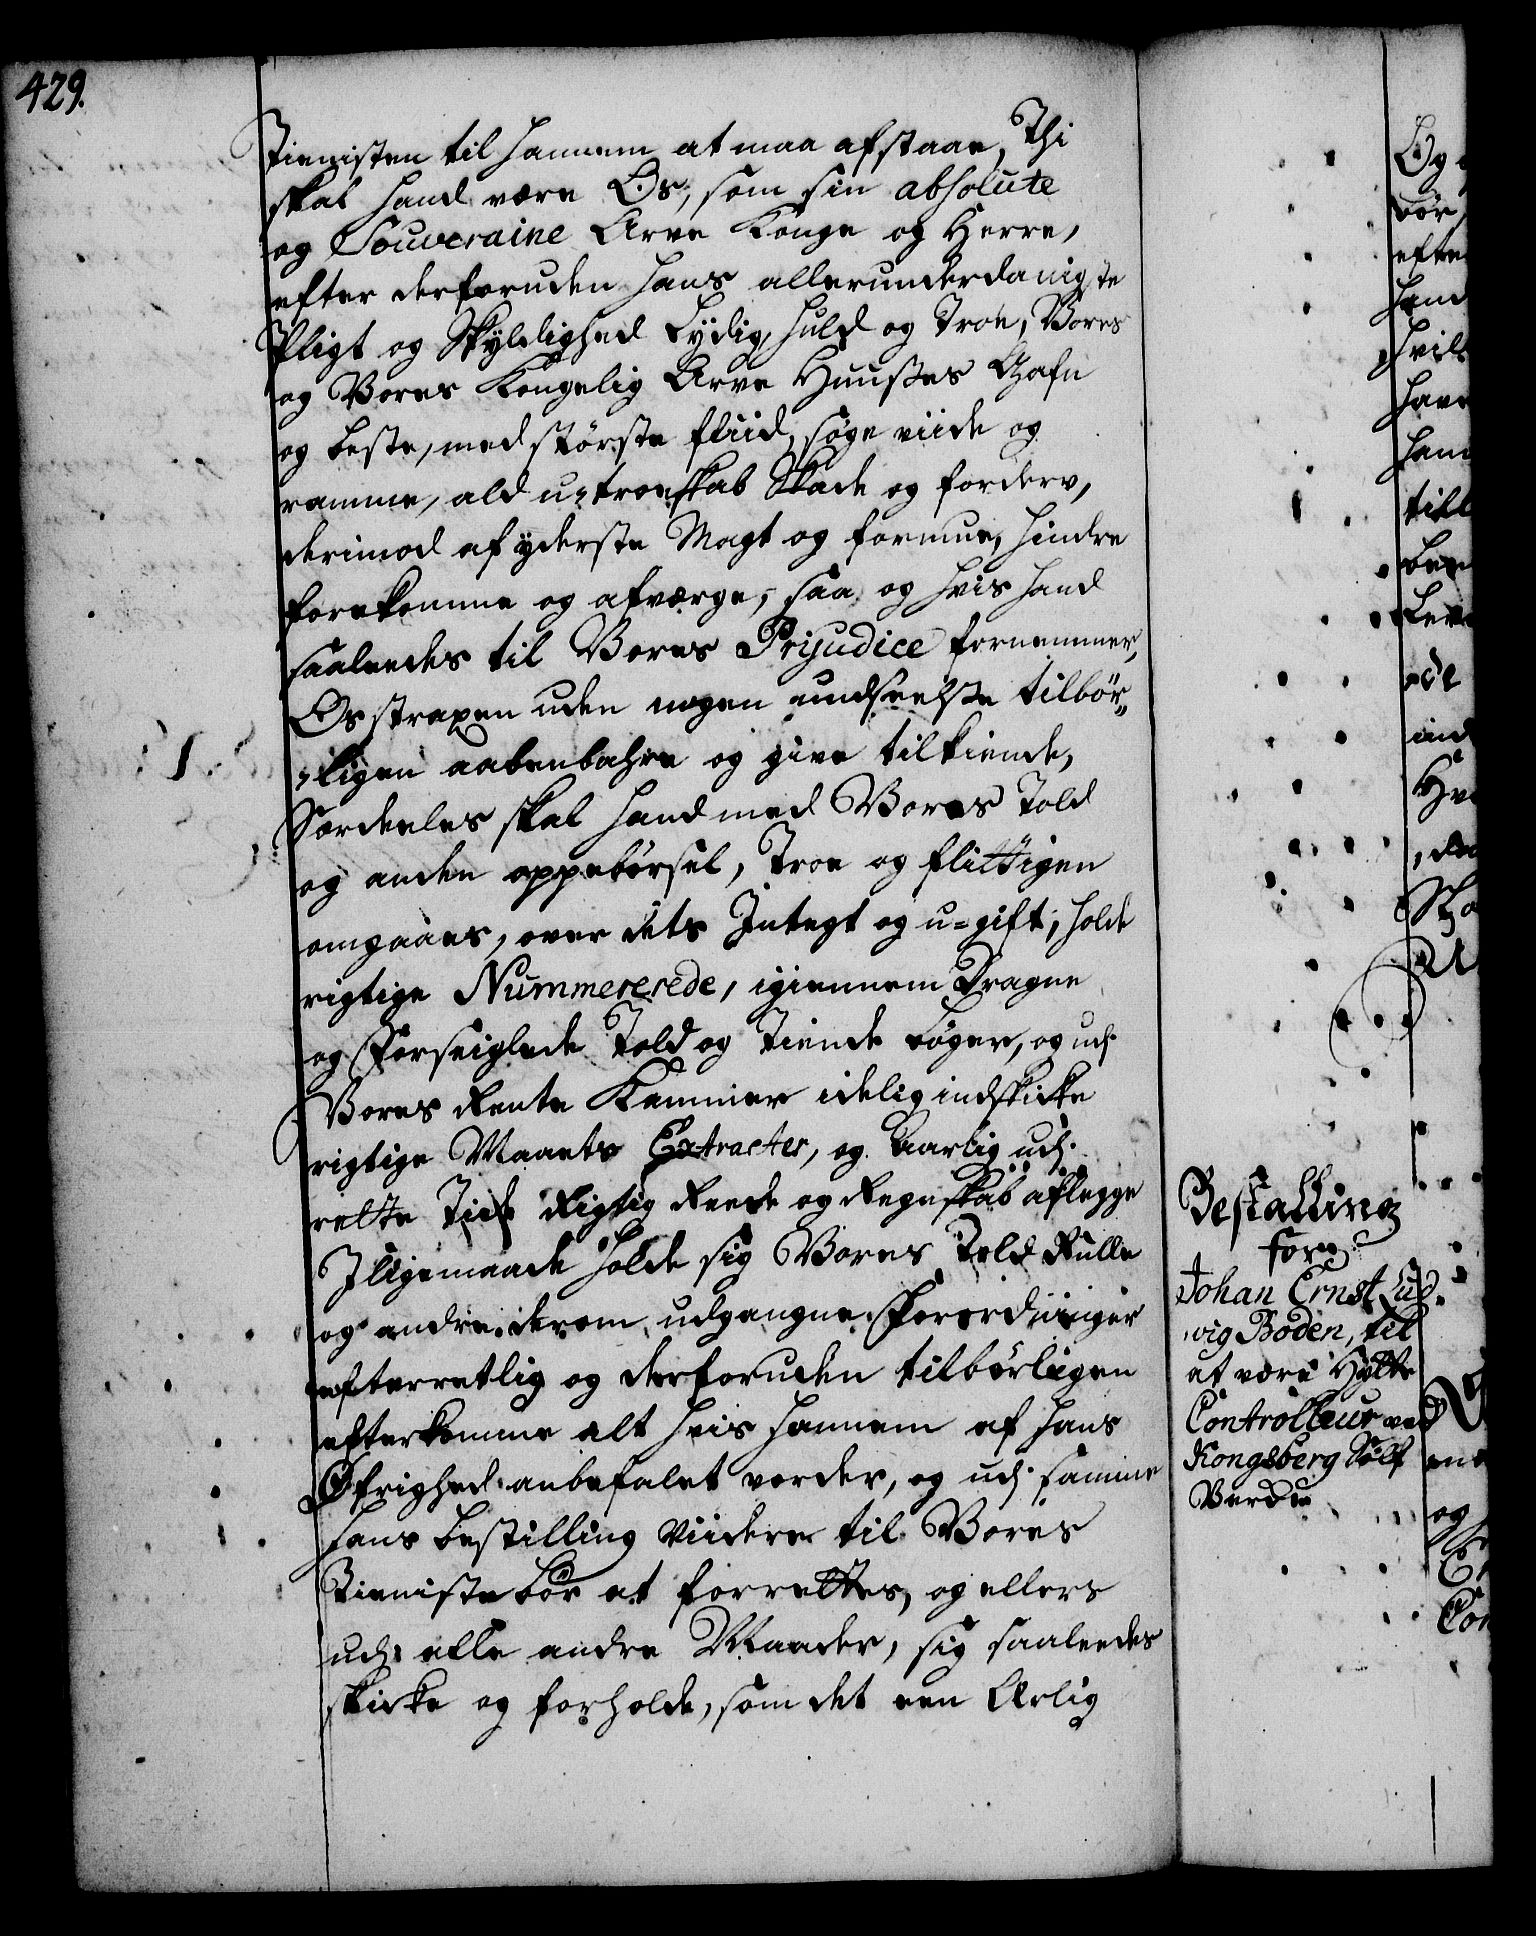 429.
Tienisten til hannem at maa afstaae, Thi
skal hand være Os, som sin absolute
og Souveraine Arve Konge og Herre,
efter derforuden hans allerunderdanigste
Pligt og Skyldighed Lydig, huld og Troe, Vores
og Vores Kongelig Arve Huuses Gafn
og beste, med største fliid, søge viide og
ramme, ald u-troeskab Skade og forderv,
derimod af yderste Magt og formue, hindre
forekomme og afværge, saa og hvis hand
saaleedes til Vores Prijudice fornemmer,
Os straxen uden nogen undseelse tilbør-
-ligen aabenbahre og give tilkiende,
Særdeeles skal hand med Vores Told
og anden oppebørsel, Troe og flittigen
omgaaes, over dets Indtegt og u=gift, holde
rigtige Nummererede, igiennem Dragne
og Forseiglede Told og Tiende bøger, og udj
Vores Rente Kammer idelig indskicke
rigtige Maanets Extracter, og Aarlig udj
rette Tide Rigtig Reede og Regnskab aflegge
Jligemaade holde sig Vores Told Rulle
og andre derom udgangne Forordninger
efterretlig og derforuden tilbørligen
efterkomme alt hvis hannem af hans
Øfrighed anbefalet vorder, og udj samme
hans bestilling Viidere til Vores
Tieniste bør at forrettes, og ellers
udj alle andre Maader, sig saaleedes
skicke og forholde, som det een Ærlig
Bestalling
for
Johan Ernst Lud-
wig Boden, til
at være Hytte
Controlleur ved
Kongsberg Sølf
Verck
Og
bør
efte
hand
hvil
have
hand
till
Hv
og
Con